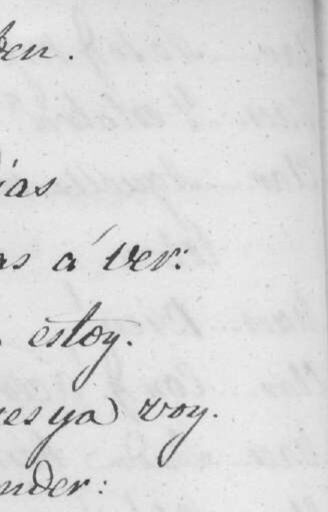 den.
ias
as á ver:
estoy.
ues ya voy.
nder: